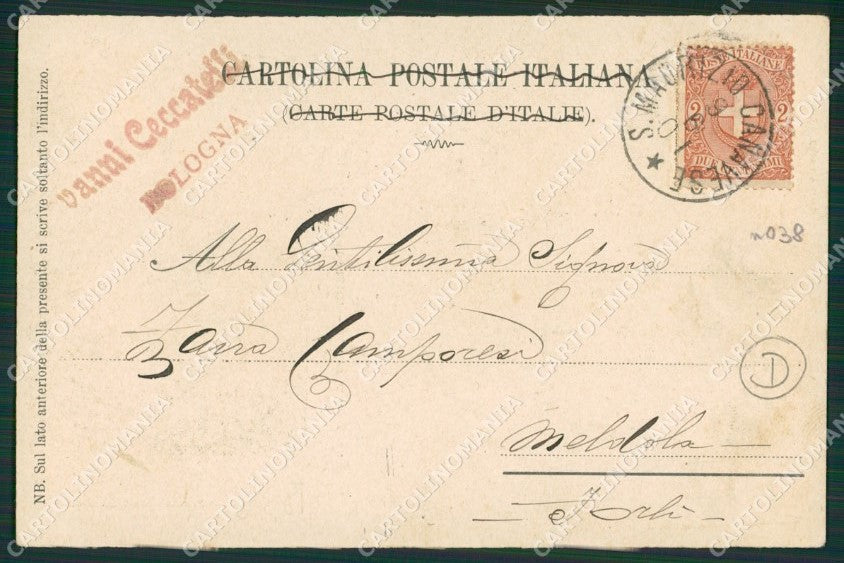 CARTOLINA POSTALE ITALIANA
(CARTE POSTALE D'ITALIE).
vanni Ceccatelli
BOLOGNA
POSTE ITALIANE
2 2
DUE CENTESIMI
S. MAURIZIO CANAVESE
n038
Alla Gentilissima Signora
Zaira Camporesi
D
Meldola
Forlì
NB. Sul lato anteriore della presente si scrive soltanto l'indirizzo.
CARTOLINOMANIA